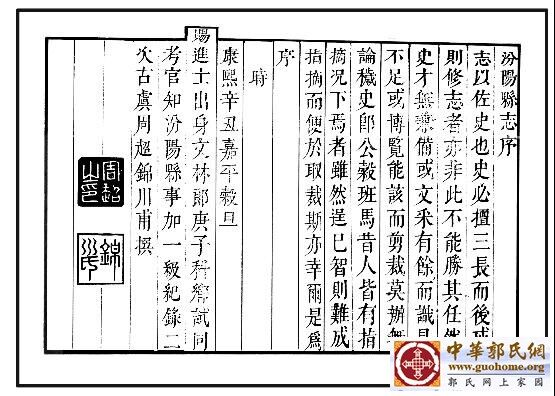 汾陽縣志序
志以佐史也史必擅三長而後
則修志者亦非此不能勝其任然
史才無備或文采有餘而識見
不足或博覽能該而剪裁莫辦無
論穢史卽公穀班馬昔人皆有指
摘況下焉者雖然逞已智則難成
指摘而便於取裁斯亦幸爾是爲
序
時
康熙辛丑嘉平穀旦
賜進士出身文林郎庚子科鄉試同
考官知汾陽縣事加一級紀錄二
次古虞周超錦川甫撰
周超之印
錦川氏
中華郭氏網
www.guohome.org
郭氏网上家园